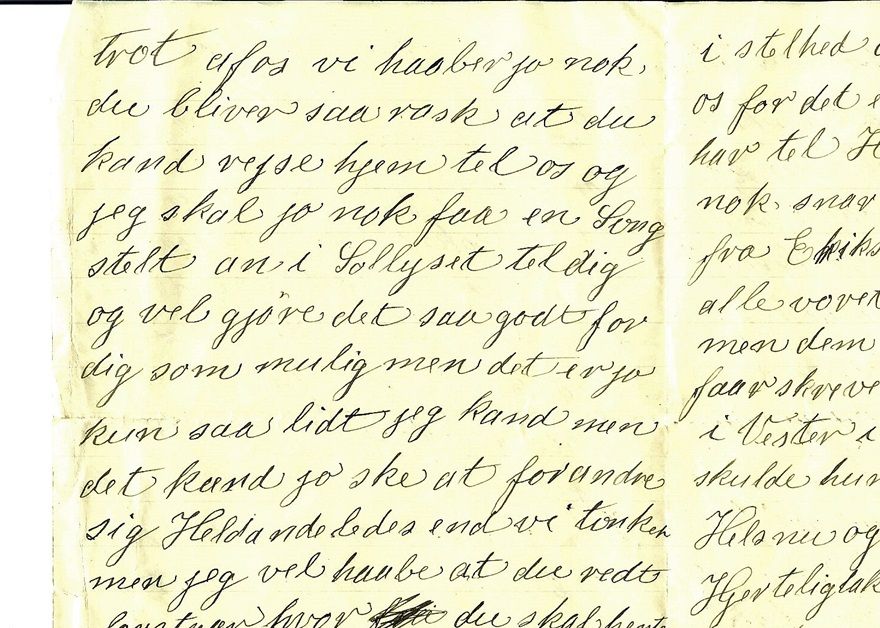 trot afos vi haaber jo nok
du bliver saa rask at du
kand rejse hjem tel os og
jeg skal jo nok faa en Seng
stelt an i Sollyset tel dig
og vel gjöre det saa godt for
dig som mulig men det er jo
kun saa lidt jeg kand men
det kand jo ske at forandre
sig Heldandeledes end vi tenker
men jeg vel haabe at du redt
hvor du skal hente
i stelhed
os for det e
har tel H
nok snar
fra Eriks
alle voret
men dem
faar skreve
i Vester i
skulde hun
Hels nu og
Hjerteligtak